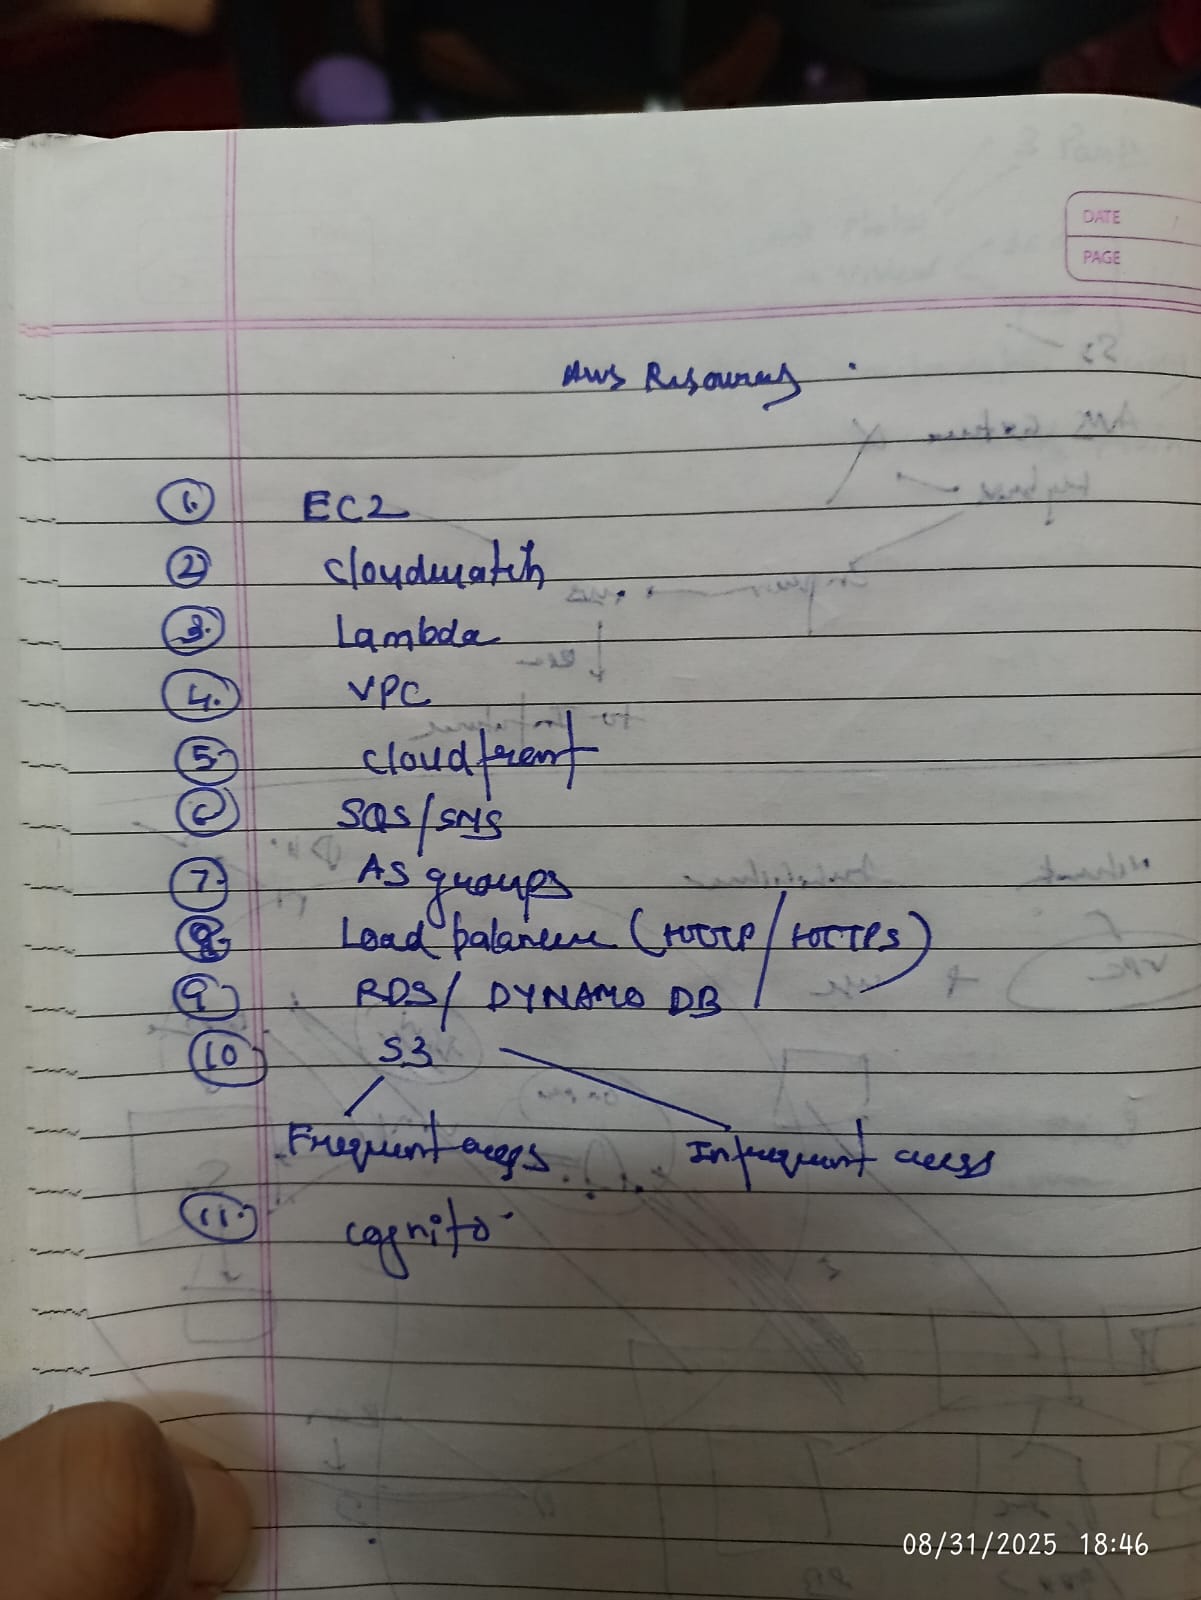 DATE
PAGE
AWS Resources
1. EC2
2 Cloudwatch
3. Lambda
4. VPC
5. Cloudfront
6 SQS/SNS
7. AS groups
8. Load balancer (HTTP/HTTPS)
9. RDS/ DYNAMO DB
10 S3
Frequent access Infrequent access
11. Cognito
08/31/2025 18:46